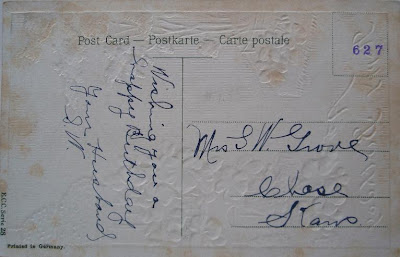 Post Card — Postkarte — Carte postale
627
Wishing you a
Happy Birthday
Your Husband
S W
Mrs S. W. Grove
Chase
Kans
Printed in Germany.